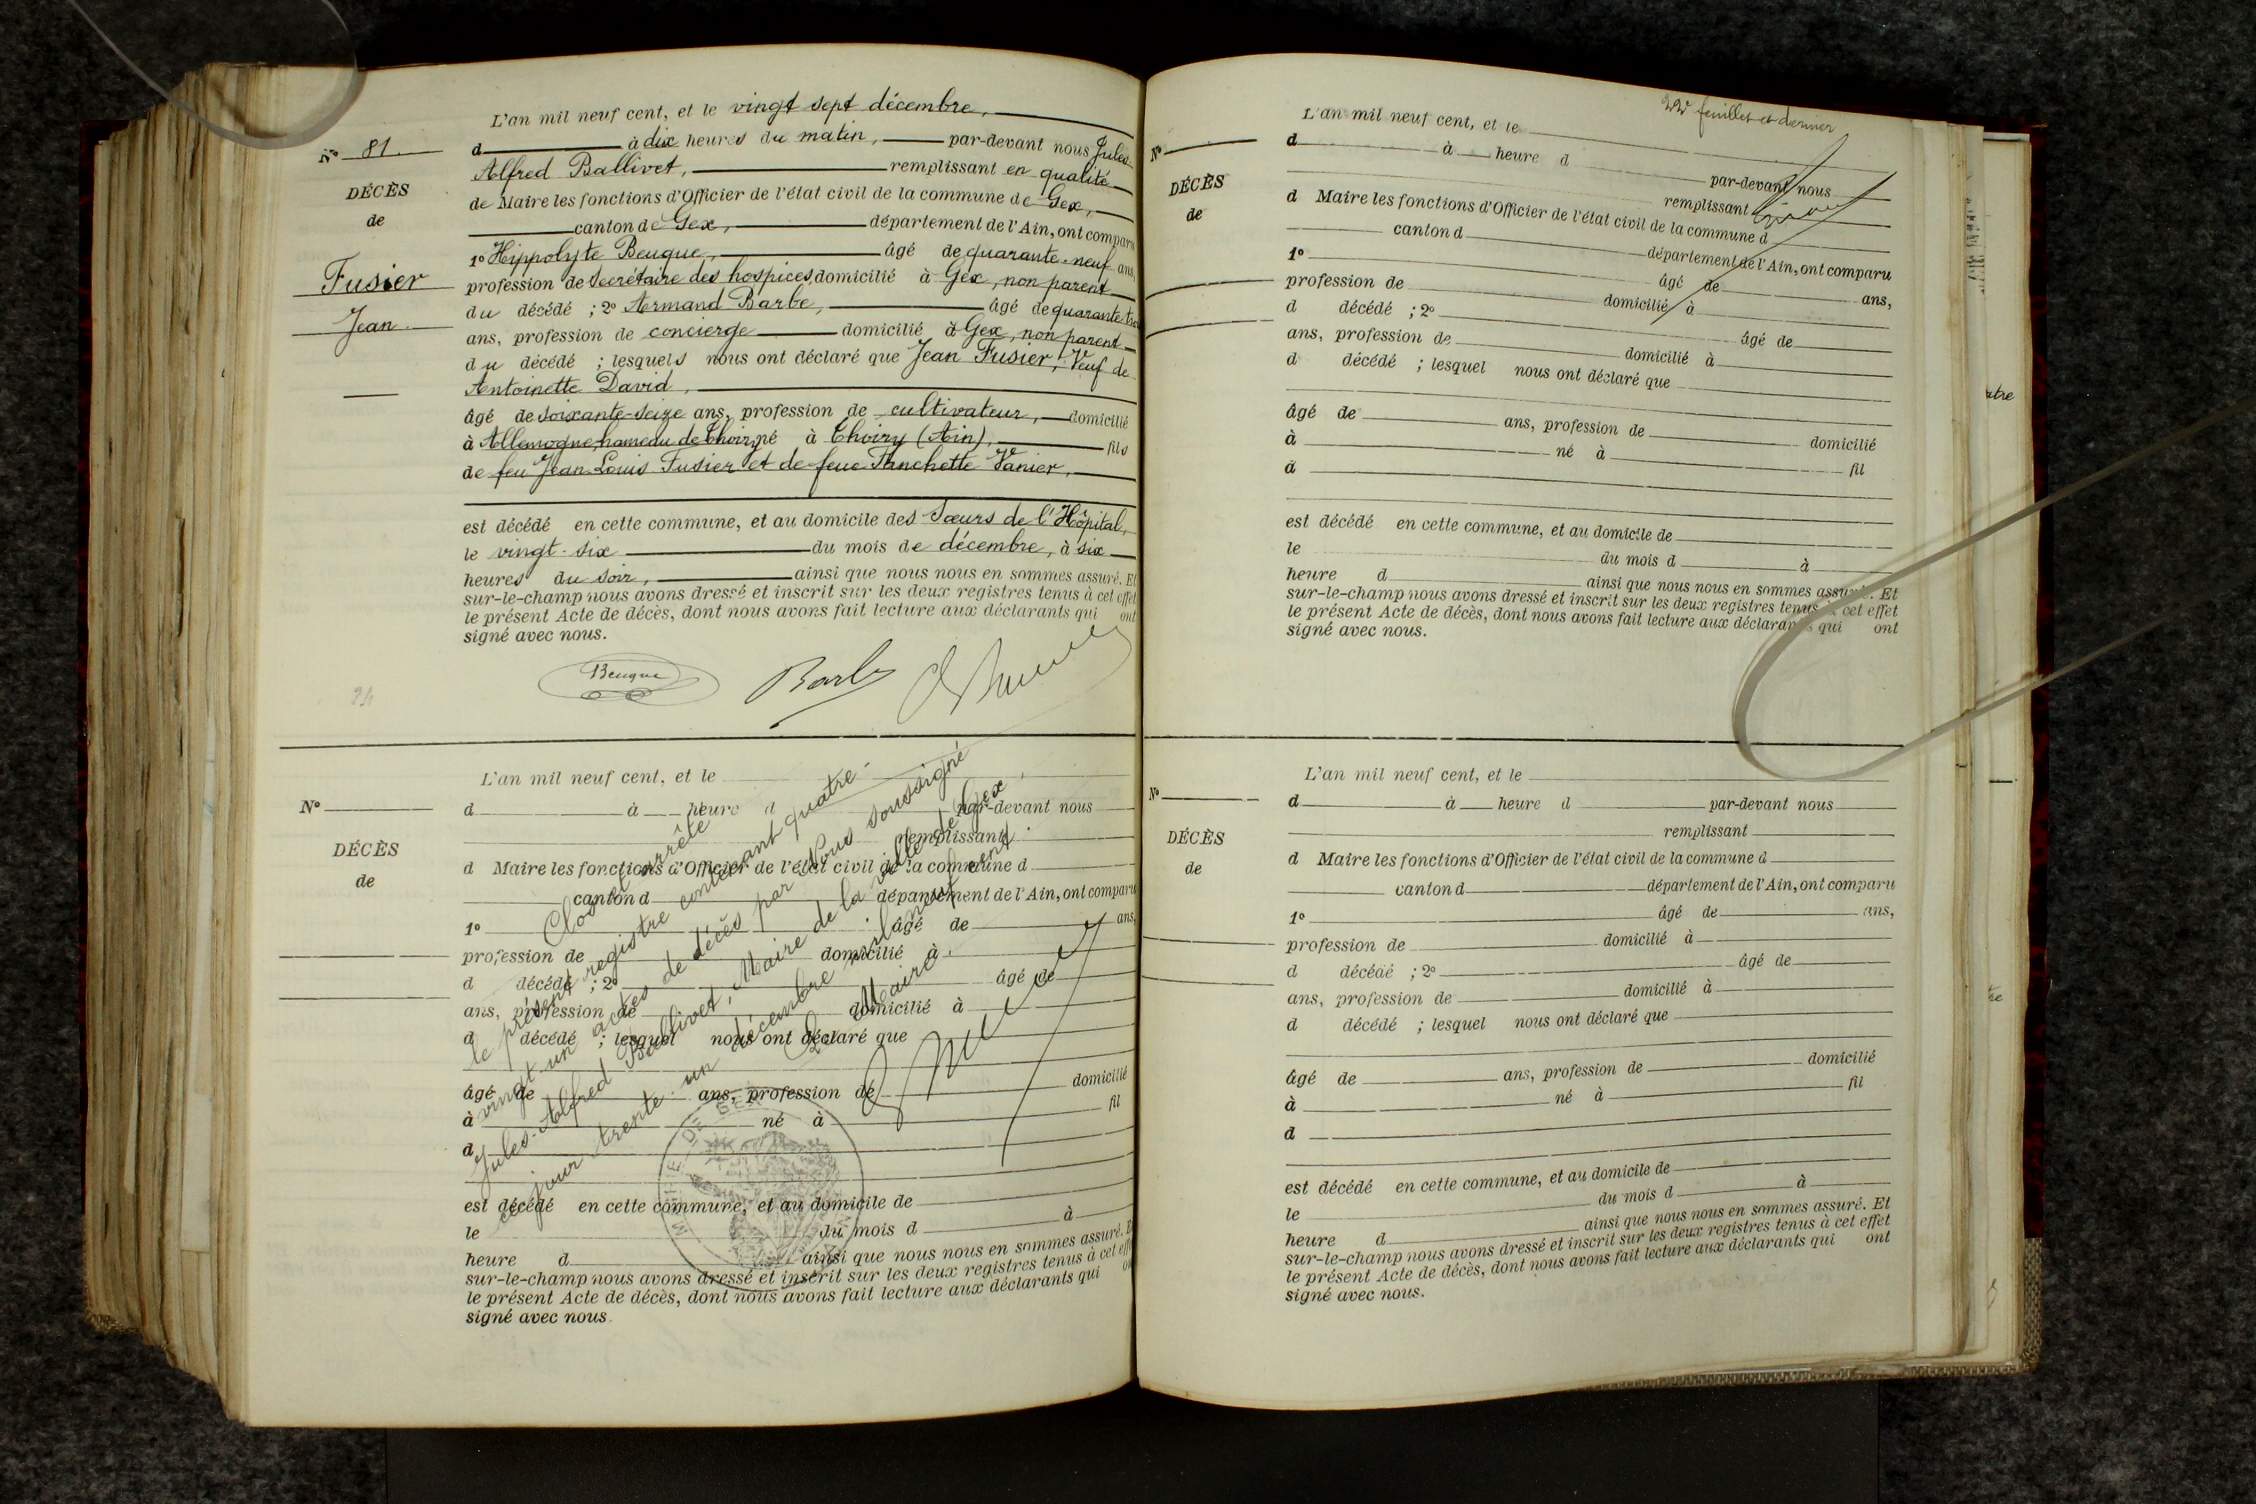 L'an mil neuf cent, et le vingt sept décembre,
d à dix heures du matin, par-devant nous Jules
Nº 81.
Alfred Ballivet, remplissant en qualité
DÉCÈS
de Maire les fonctions d'Officier de l'état civil de la commune de Gex,
de
canton de Gex, département de l'Ain, ont comparu
1º Hippolyte Beugue, âgé de quarante-neuf ans,
Fusier
profession de Secrétaire des hospices, domicilié à Gex, non parent
du décédé ; 2º Armand Barbe, âgé de quarante trois
Jean
ans, profession de concierge domicilié à Gex, non parent
du décédé ; lesquels nous ont déclaré que Jean Fusier, Veuf de
Antoinette David,
âgé de soixante-seize ans, profession de cultivateur, domicilié
à Allemogne, hameau de Thoiry, né à Thoiry (Ain), fils
de feu Jean Louis Fusier et de feue Fanchette Vanier,
est décédé en cette commune, et au domicile des Sœurs de l'Hôpital,
le vingt-six du mois de décembre, à six
heures du soir, ainsi que nous nous en sommes assuré. Et
sur-le-champ nous avons dressé et inscrit sur les deux registres tenus à cet effet
le présent Acte de décès, dont nous avons fait lecture aux déclarants qui ont
signé avec nous.
Beugue Barbe
24
L'an mil neuf cent, et le
Nº
d à heure d par-devant nous
remplissant
DÉCÈS
d Maire les fonctions d'Officier de l'état civil de la commune d
de
canton d département de l'Ain, ont comparu
1º âgé de ans,
profession de domicilié à
d décédé ; 2º âgé de
ans, profession de domicilié à
d décédé ; lesquel nous ont déclaré que
âgé de ans, profession de domicilié
à né à fil
d
est décédé en cette commune, et au domicile de
le du mois d à
heure d ainsi que nous nous en sommes assuré. Et
sur-le-champ nous avons dressé et inscrit sur les deux registres tenus à cet effet
le présent Acte de décès, dont nous avons fait lecture aux déclarants qui on
signé avec nous.
Clos et arrêté
le présent registre contenant quatre-
vingt-un actes de décès par Nous soussigné
Jules-Alfred Ballivet, Maire de la ville de Gex,
ce jour trente-un décembre mil neuf cent.
Le Maire
MAIRIE DE GEX
22e feuillet et dernier
L'an mil neuf cent, et le
Nº
d à heure d par-devant nous
remplissant
DÉCÈS
d Maire les fonctions d'Officier de l'état civil de la commune d
de
canton d département de l'Ain, ont comparu
1º âgé de ans,
profession de domicilié à
d décédé ; 2º âgé de
ans, profession de domicilié à
d décédé ; lesquel nous ont déclaré que
âgé de ans, profession de domicilié
à né à fil
d
est décédé en cette commune, et au domicile de
le du mois d à
heure d ainsi que nous nous en sommes assuré. Et
sur-le-champ nous avons dressé et inscrit sur les deux registres tenus à cet effet
le présent Acte de décès, dont nous avons fait lecture aux déclarants qui ont
signé avec nous.
L'an mil neuf cent, et le
Nº
d à heure d par-devant nous
remplissant
DÉCÈS
d Maire les fonctions d'Officier de l'état civil de la commune d
de
canton d département de l'Ain, ont comparu
1º âgé de ans,
profession de domicilié à
d décédé ; 2º âgé de
ans, profession de domicilié à
d décédé ; lesquel nous ont déclaré que
âgé de ans, profession de domicilié
à né à fil
d
est décédé en cette commune, et au domicile de
le du mois d à
heure d ainsi que nous nous en sommes assuré. Et
sur-le-champ nous avons dressé et inscrit sur les deux registres tenus à cet effet
le présent Acte de décès, dont nous avons fait lecture aux déclarants qui ont
signé avec nous.